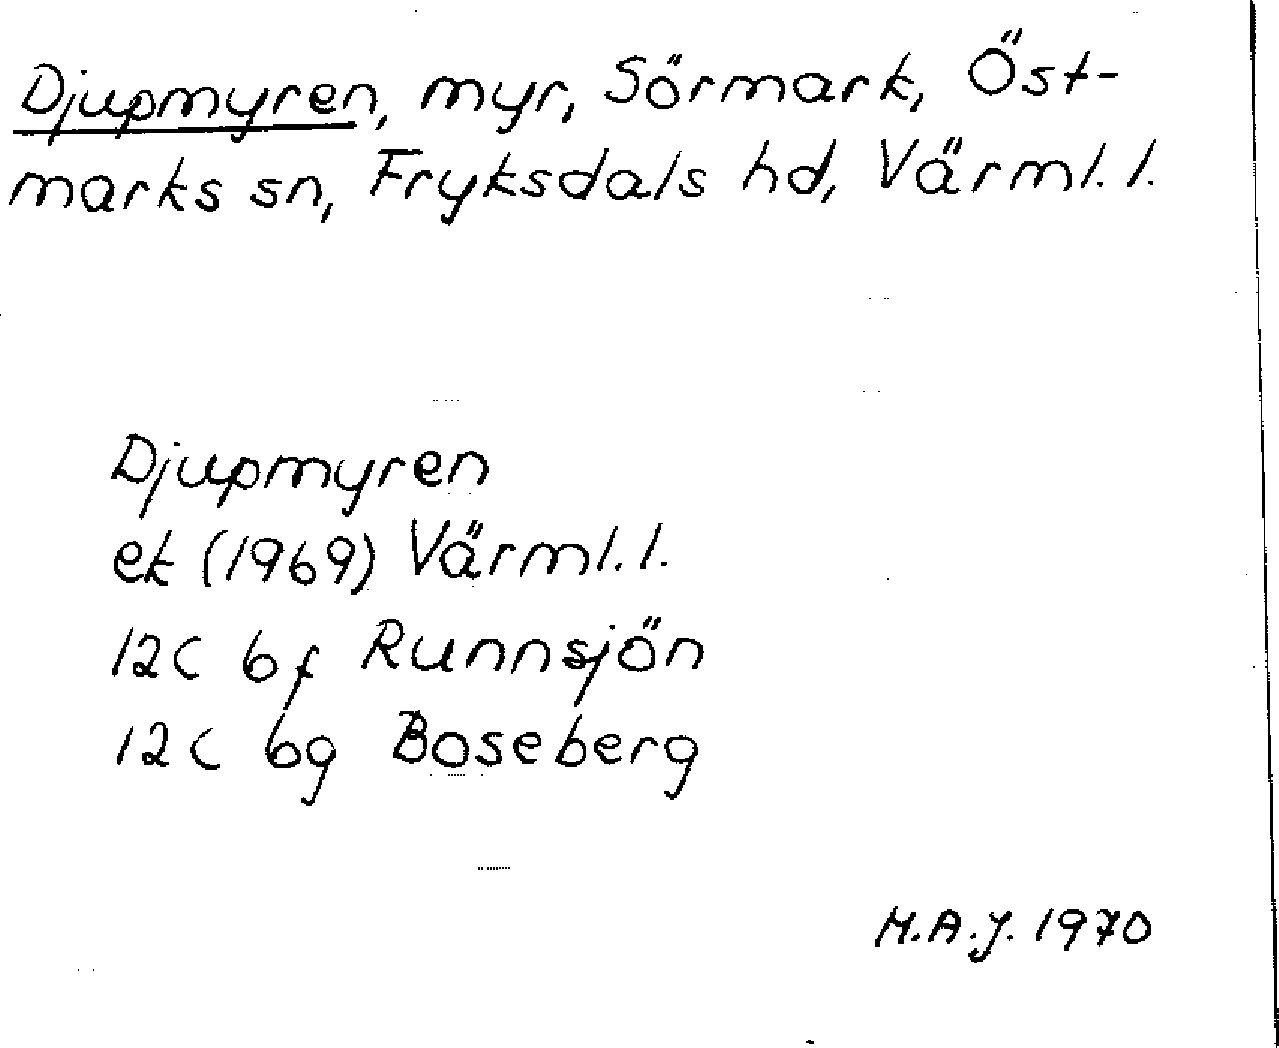 Djupmyren, myr, Sörmark, Öst-
marks sn, Fryksdals hd, Värml. l.
Djupmyren
ek (1969) Värml. l.
12C 6f Runnsjön
12C 6g Boseberg
M.A.J. 1970